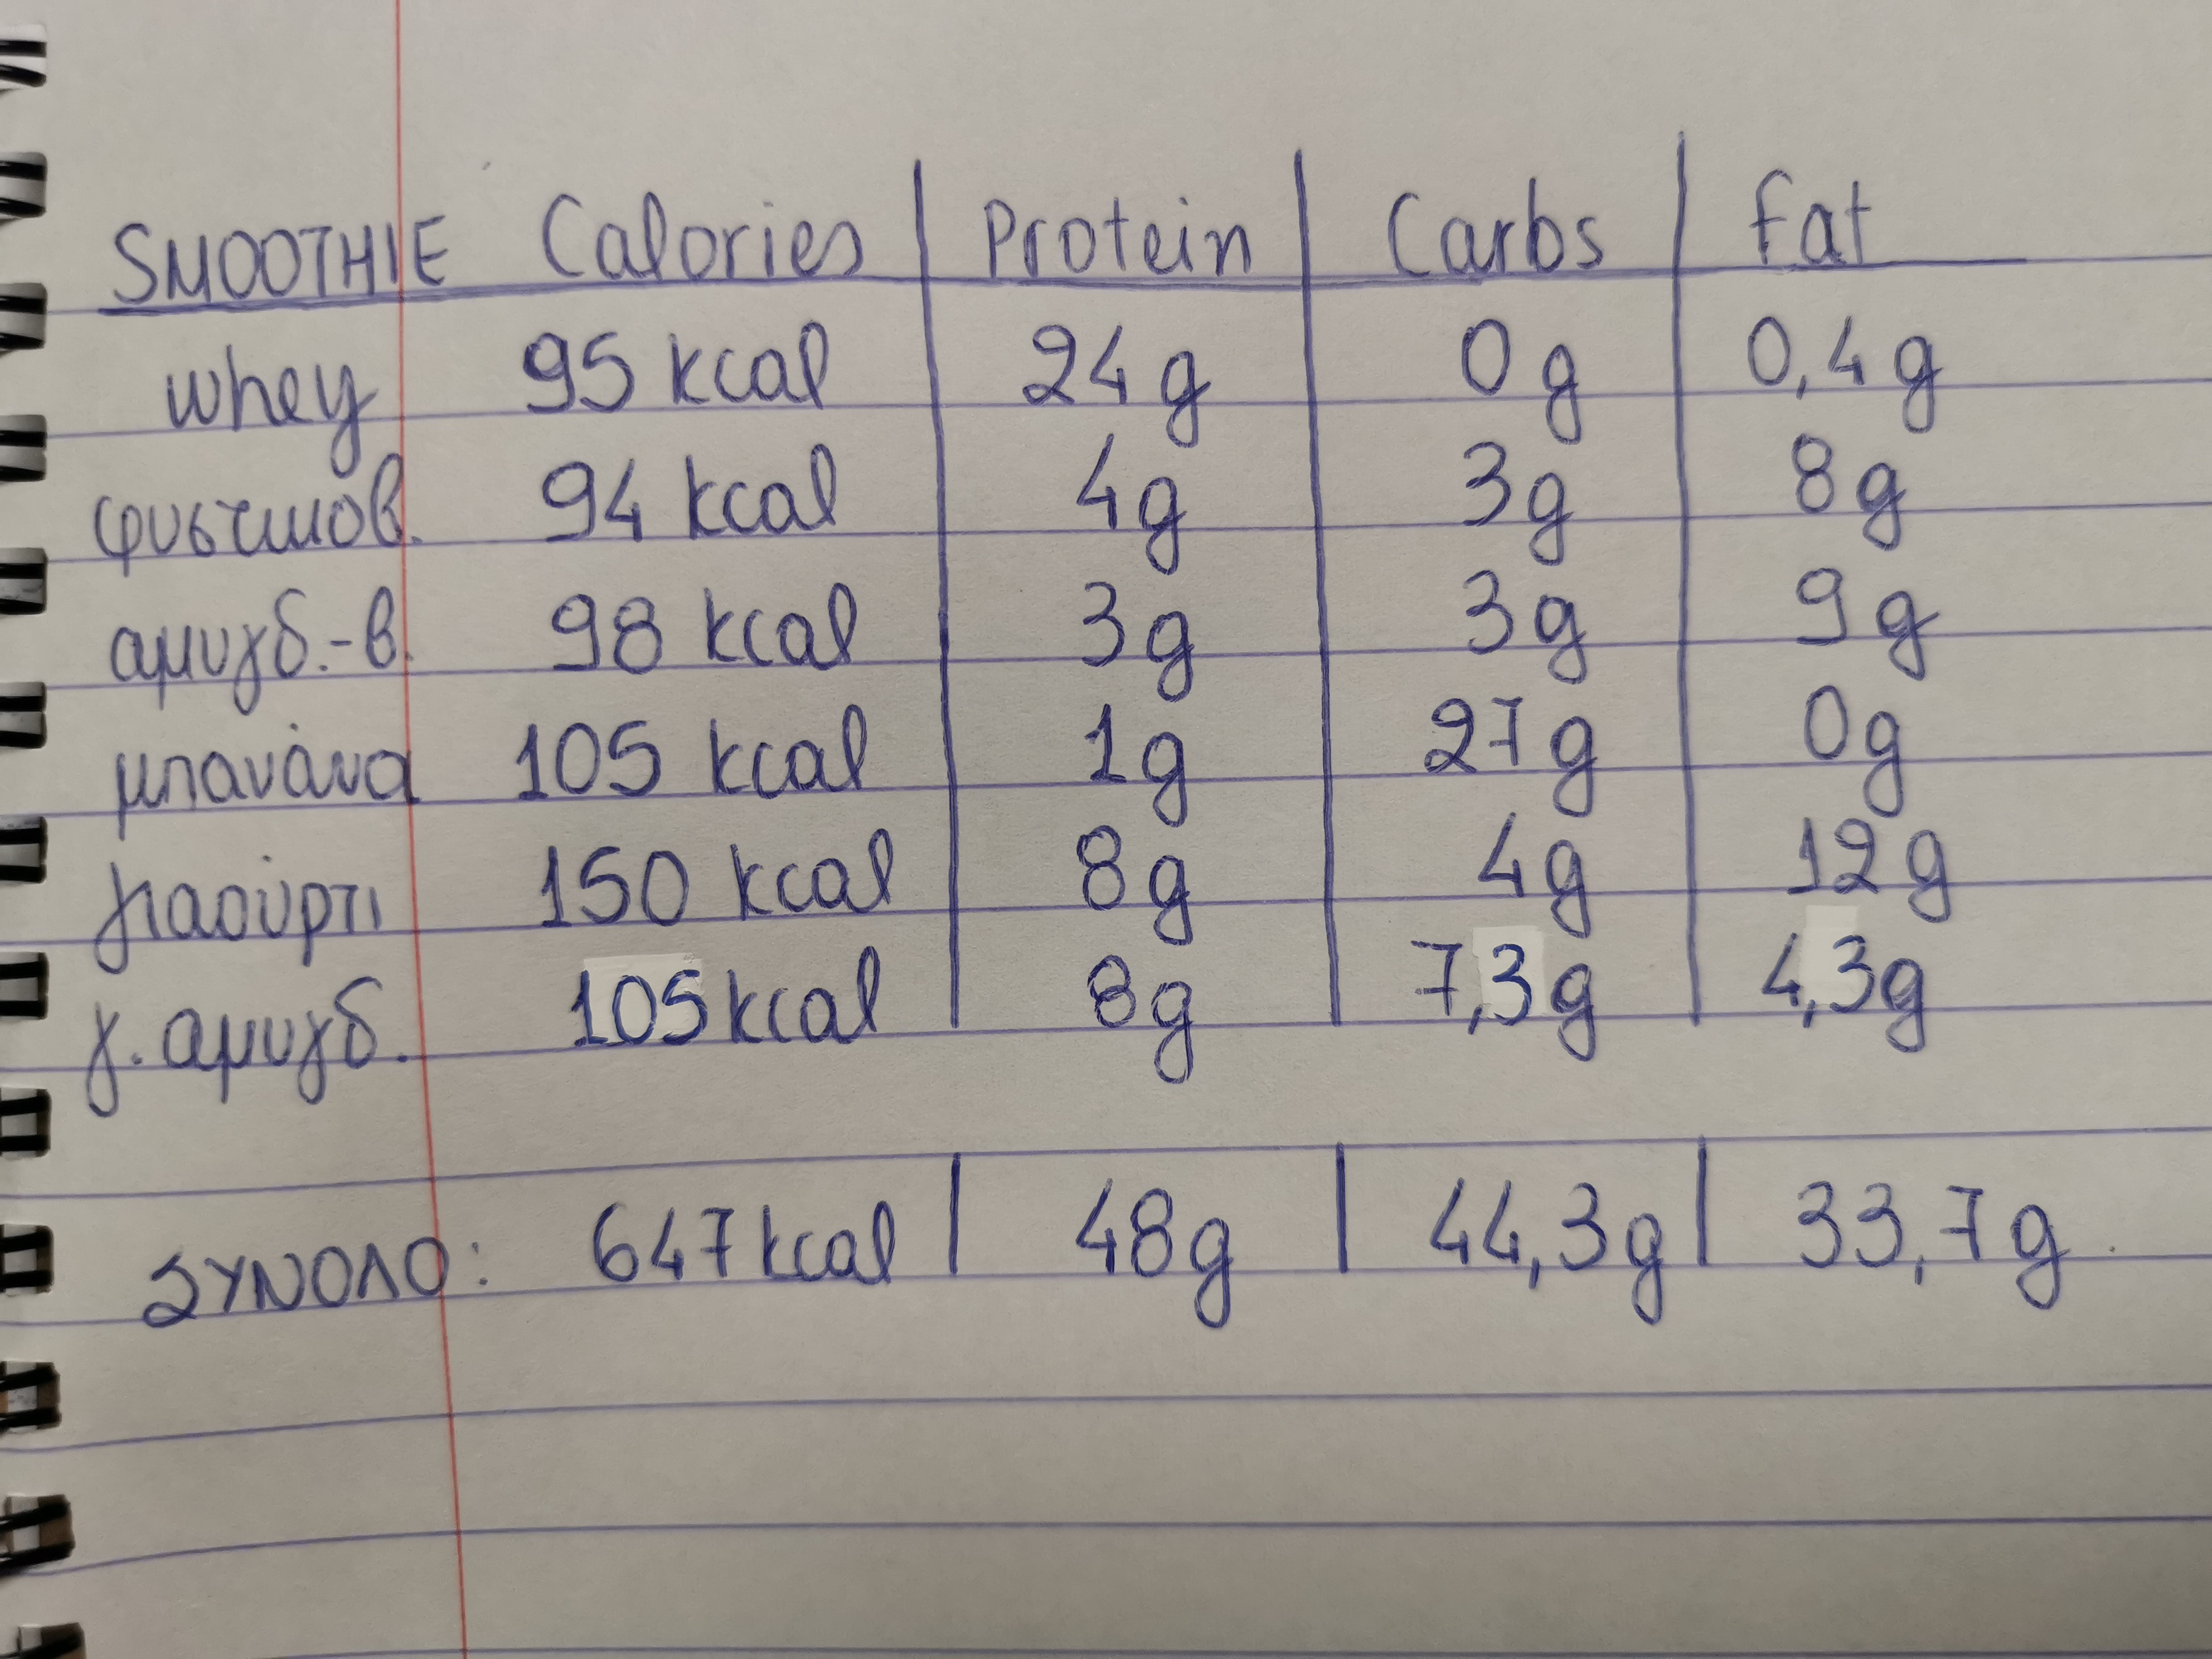 SMOOTHIE Calories | Protein | Carbs | Fat
whey 95 kcal 24g 0g 0,4g
φυστικοβ. 94 kcal 4g 3g 8g
αμυγδ.-β. 98 kcal 3g 3g 9g
μπανάνα 105 kcal 1g 27g 0g
γιαούρτι 150 kcal 8g 4g 12g
γ. αμυγδ. 105 kcal 8g 7,3g 4,3g
ΣΥΝΟΛΟ: 647 kcal | 48g | 44,3g | 33,7g